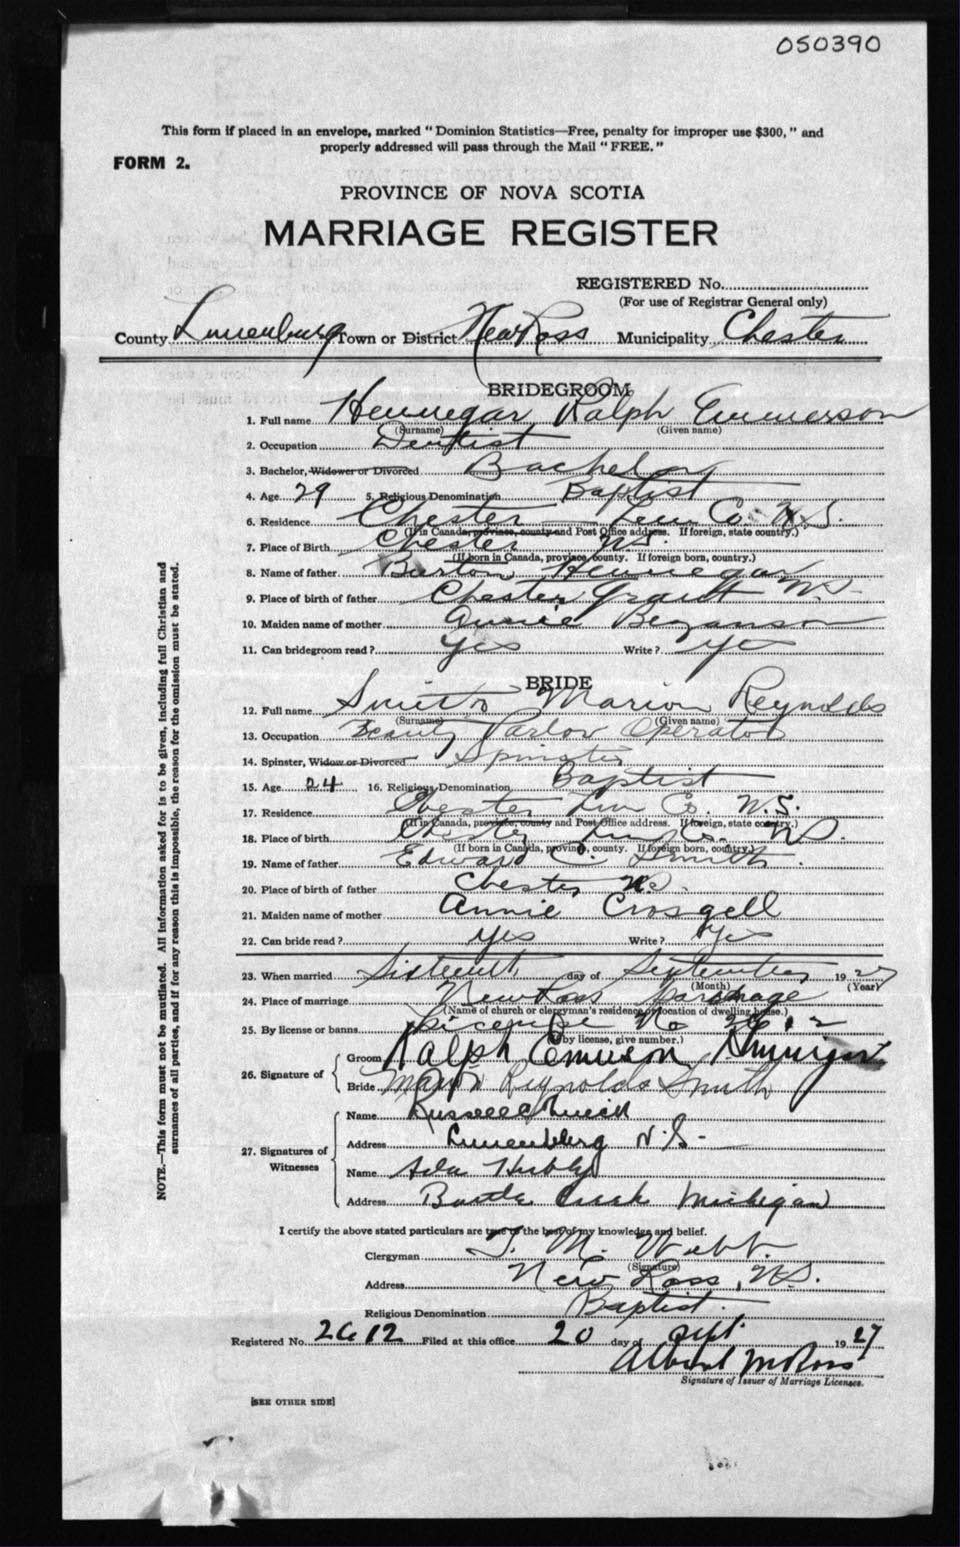 050390
This form if placed in an envelope, marked "Dominion Statistics—Free, penalty for improper use $300," and
properly addressed will pass through the Mail "FREE."
FORM 2.
PROVINCE OF NOVA SCOTIA
MARRIAGE REGISTER
REGISTERED No.
(For use of Registrar General only)
County Lunenburg Town or District New Ross Municipality Chester
BRIDEGROOM
1. Full name Hennegar Ralph Emmerson
(Surname) (Given name)
2. Occupation Dentist
3. Bachelor, Widower or Divorced Bachelor
4. Age 29 5. Religious Denomination Baptist
6. Residence Chester Lun Co. N.S.
(If in Canada, province, county and Post Office address. If foreign, state country.)
7. Place of Birth Chester N.S.
(If born in Canada, province, county. If foreign born, country.)
8. Name of father Burton Hennegar
9. Place of birth of father Chester Grant N.S.
10. Maiden name of mother Bezanson
11. Can bridegroom read? Yes Write? Yes
BRIDE
12. Full name Smith Marion Reynolds
(Surname) (Given name)
13. Occupation Beauty Parlor Operator
14. Spinster, Widow or Divorced Spinster
15. Age 24 16. Religious Denomination Baptist
17. Residence Chester Lun Co. N.S.
(If in Canada, province, county and Post Office address. If foreign, state country.)
18. Place of birth Chester Lun Co. N.S.
(If born in Canada, province, county. If foreign born, country.)
19. Name of father Edward C. Smith
20. Place of birth of father Chester N.S.
21. Maiden name of mother Annie Crosgell
22. Can bride read? Yes Write? Yes
23. When married Sixteenth day of September 1927
(Month) (Year)
24. Place of marriage New Ross Parsonage
(Name of church or clergyman's residence or location of dwelling house.)
25. By license or banns License No 2612
(If by license, give number.)
26. Signature of
Groom Ralph Emerson Hennigar
Bride Marion Reynolds Smith
27. Signatures of Witnesses
Name Russell C.
Address Lunenburg N.S.
Name Ada
Address Battle Creek Michigan
I certify the above stated particulars are true to the best of my knowledge and belief.
Clergyman T. M. Webb.
(Signature)
Address New Ross, N.S.
Religious Denomination Baptist.
Registered No. 2612 Filed at this office 20 day of Sept. 1927
Albert M Ross
Signature of Issuer of Marriage Licenses.
[SEE OTHER SIDE]
NOTE.—This form must not be mutilated. All information asked for is to be given, including full Christian and
surnames of all parties, and if for any reason this is impossible, the reason for the omission must be stated.